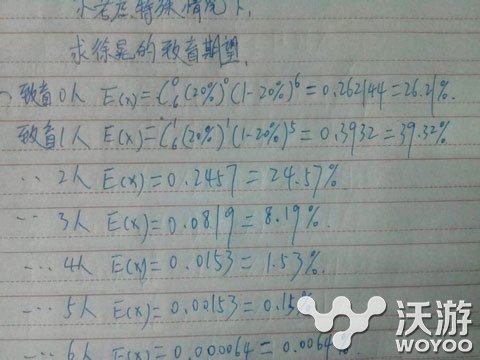 不考虑特殊情况下,
求徐晃的致盲期望.
致盲0人 E(x)=C₆⁰(20%)⁰(1-20%)⁶=0.262144=26.21%
致盲1人 E(x)=C₆¹(20%)¹(1-20%)⁵=0.3932=39.32%
... 2人 E(x)=0.2457=24.57%.
... 3人 E(x)=0.0819=8.19%.
... 4人 E(x)=0.0153=1.53%.
... 5人 E(x)=0.00153=0.15%
... 6人 E(x)=0.000064=0.0064%
沃游
WOYOO